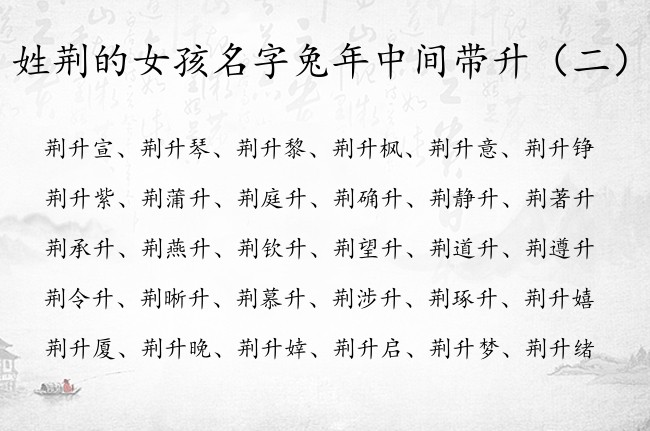 姓荆的女孩名字兔年中间带升（二）
荆升宣、荆升琴、荆升黎、荆升枫、荆升意、荆升铮
荆升紫、荆蒲升、荆庭升、荆确升、荆静升、荆著升
荆承升、荆燕升、荆钦升、荆望升、荆道升、荆遵升
荆令升、荆晰升、荆慕升、荆涉升、荆琢升、荆升嬉
荆升厦、荆升晚、荆升婞、荆升启、荆升梦、荆升绪